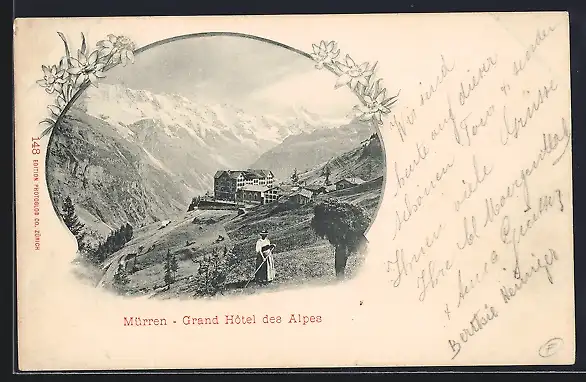 148 EDITION PHOTOGLOB CO. ZÜRICH
Mürren - Grand Hôtel des Alpes
Wir sind
heute auf dieser
schönen Tour & senden
Ihnen viele Grüsse
Ihre
& Anna
Berthie